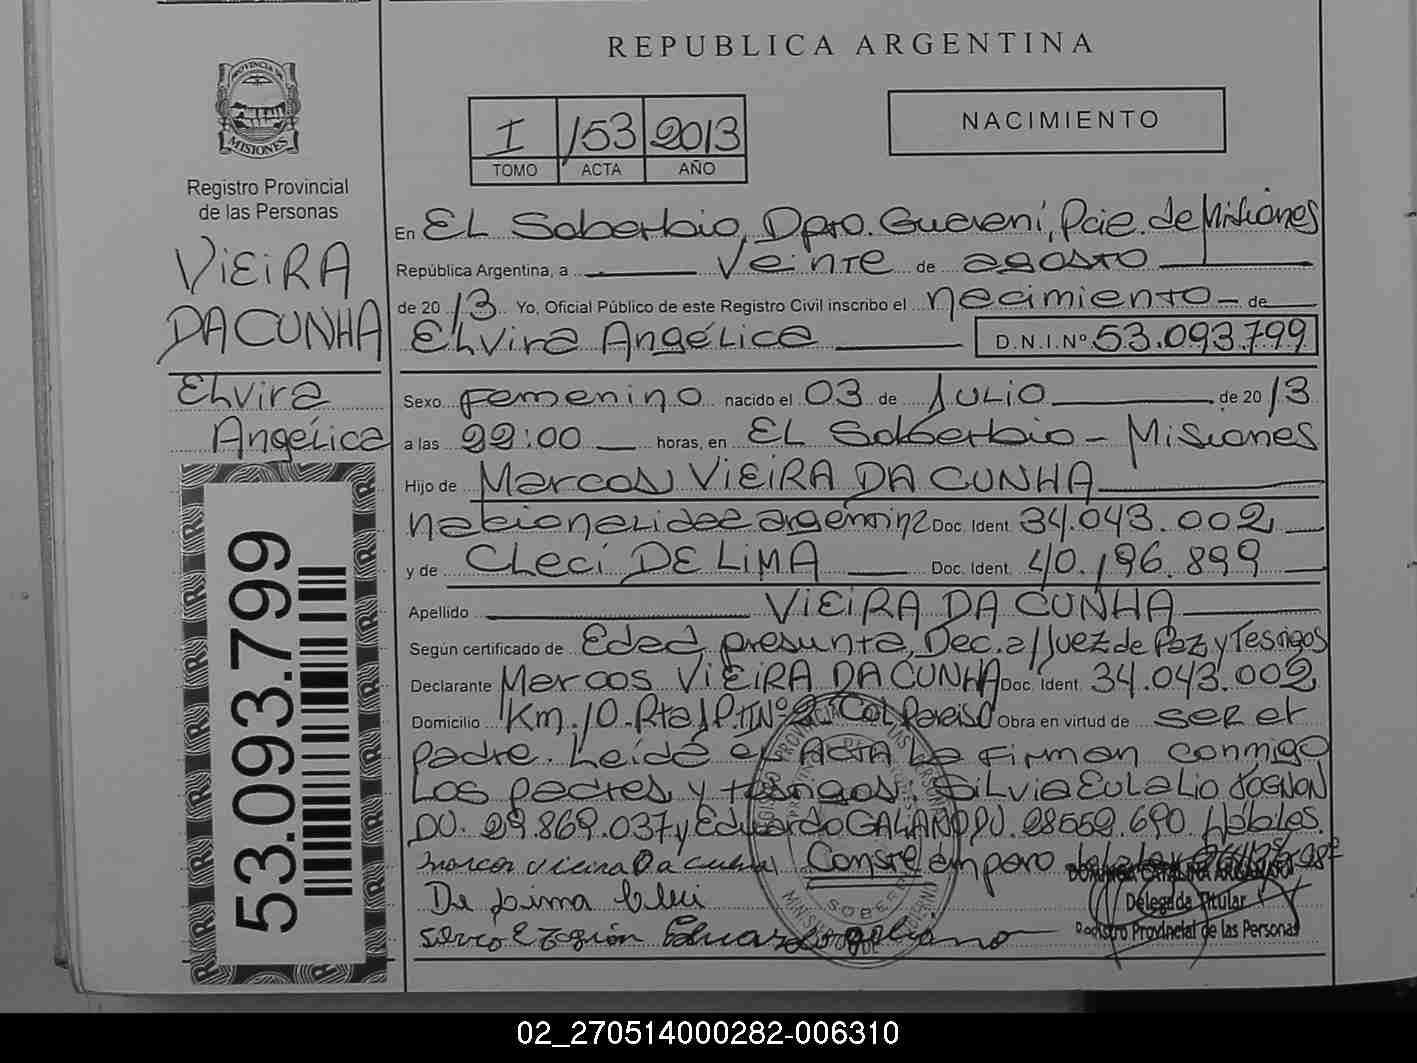 REPUBLICA ARGENTINA
PROVINCIA DE
MISIONES
Registro Provincial
de las Personas
VIEIRA
DA CUNHA
Elvira
Angélica
53.093.799
I 153 2013
TOMO ACTA AÑO
NACIMIENTO
En EL Soberbio, Dpto. Guaraní, Pcia. de Misiones
República Argentina, a Veinte de agosto
de 2013 Yo, Oficial Público de este Registro Civil inscribo el nacimiento de
Elvira Angélica D.N.I.Nº 53.093.799
Sexo Femenino nacido el 03 de JULIO de 2013
a las 22:00 horas, en EL Soberbio - Misiones
Hijo de Marcos VIEIRA DA CUNHA
nacionalidad argentina Doc. Ident. 34.043.002
y de CLeci DE LIMA Doc. Ident. 40.196.899
Apellido VIEIRA DA CUNHA
Según certificado de Edad presunta, Dec. a/Juez de Paz y Testigos
Declarante Marcos VIEIRA DA CUNHA Doc. Ident. 34.043.002
Domicilio Km.10. Rta. Nº 2 Col Paraiso Obra en virtud de ser el
padre. Leída el Acta La Firman conmigo
Los padres y testigos: Silvia EuLaLio
DU. 29.869.037 y Eduardo GALIANO DU. 28552.690. Hábiles.
marcos vieira Da cunha Conste
De Lima Cleci
Eduardo galiano
Delegada Titular
Registro Provincial de las Personas
02_270514000282-006310